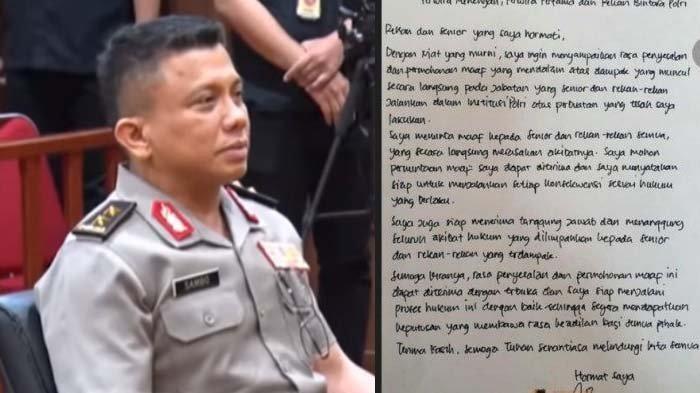 SAMBO
Perwira Menengah, Perwira Pertama dan Rekan Bintara Polri
Rekan dan senior yang saya hormati,
Dengan niat yang murni, saya ingin menyampaikan rasa penyesalan
dan permohonan maaf yang mendalam atas dampak yang muncul
secara langsung pada jabatan yang senior dan rekan-rekan
jalankan dalam institusi Polri atas perbuatan yang telah saya
lakukan.
Saya meminta maaf kepada senior dan rekan-rekan semua
yang secara langsung merasakan akibatnya. Saya mohon
permintaan maaf saya dapat diterima dan saya menyatakan
siap untuk menjalankan setiap konsekuensi sesuai hukum
yang berlaku.
Saya juga siap menerima tanggung jawab dan menanggung
seluruh akibat hukum yang dilimpahkan kepada senior
dan rekan-rekan yang terdampak.
Semoga kiranya, rasa penyesalan dan permohonan maaf ini
dapat diterima dengan terbuka dan saya siap menjalani
proses hukum ini dengan baik sehingga segera mendapatkan
keputusan yang membawa rasa keadilan bagi semua pihak.
Terima kasih, semoga Tuhan senantiasa melindungi kita semua
Hormat saya